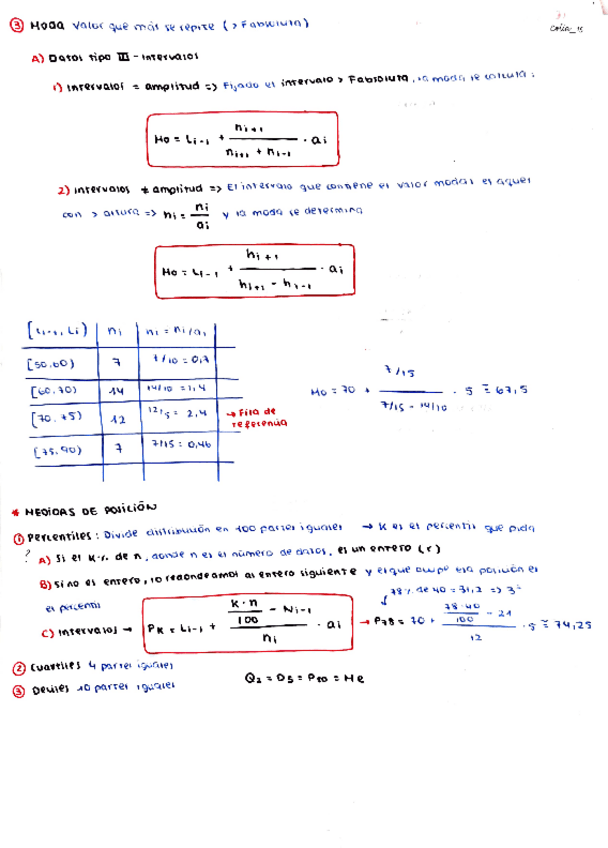 ③ MODA Valor que más se repite (> Fabsoluta)
A) Datos tipo III - Intervalos
1) Intervalos = amplitud => Fijado el intervalo > Fabsoluta, la moda se calcula:
Mo = Li-1 + ni+1 / (ni+1 + ni-1) · ai
2) Intervalos ≠ amplitud => El intervalo que contiene el valor modal es aquel
con > altura => hi = ni/ai y la moda se determina
Mo = Li-1 + hi+1 / (hi+1 - hi-1) · ai
[Li-1, Li) ni hi = ni/ai
[50,60) 7 7/10 = 0,7
[60,70) 14 14/10 = 1,4
[70,75) 12 12/5 = 2,4 → Fila de referencia
[75,90) 7 7/15 = 0,46
Mo = 70 + 7/15 / (7/15 - 14/10) · 5 ≅ 67,5
* MEDIDAS DE POSICIÓN
① Percentiles: Divide distribución en 100 partes iguales → K es el percentil que pida
? A) Si el K·/. de n, donde n es el número de datos, es un entero (r)
B) Si no es entero, lo redondeamos al entero siguiente y el que ocupe esa posición es
el percentil
78% de 40 = 31,2 =>
C) Intervalos → PK = Li-1 + (K·n/100 - Ni-1) / ni · ai → P78 = 70 + (78·40/100 - 21) / 12 · 5 ≅ 74,25
② Cuartiles 4 partes iguales
③ Deciles 10 partes iguales
Q2 = D5 = P50 = Me